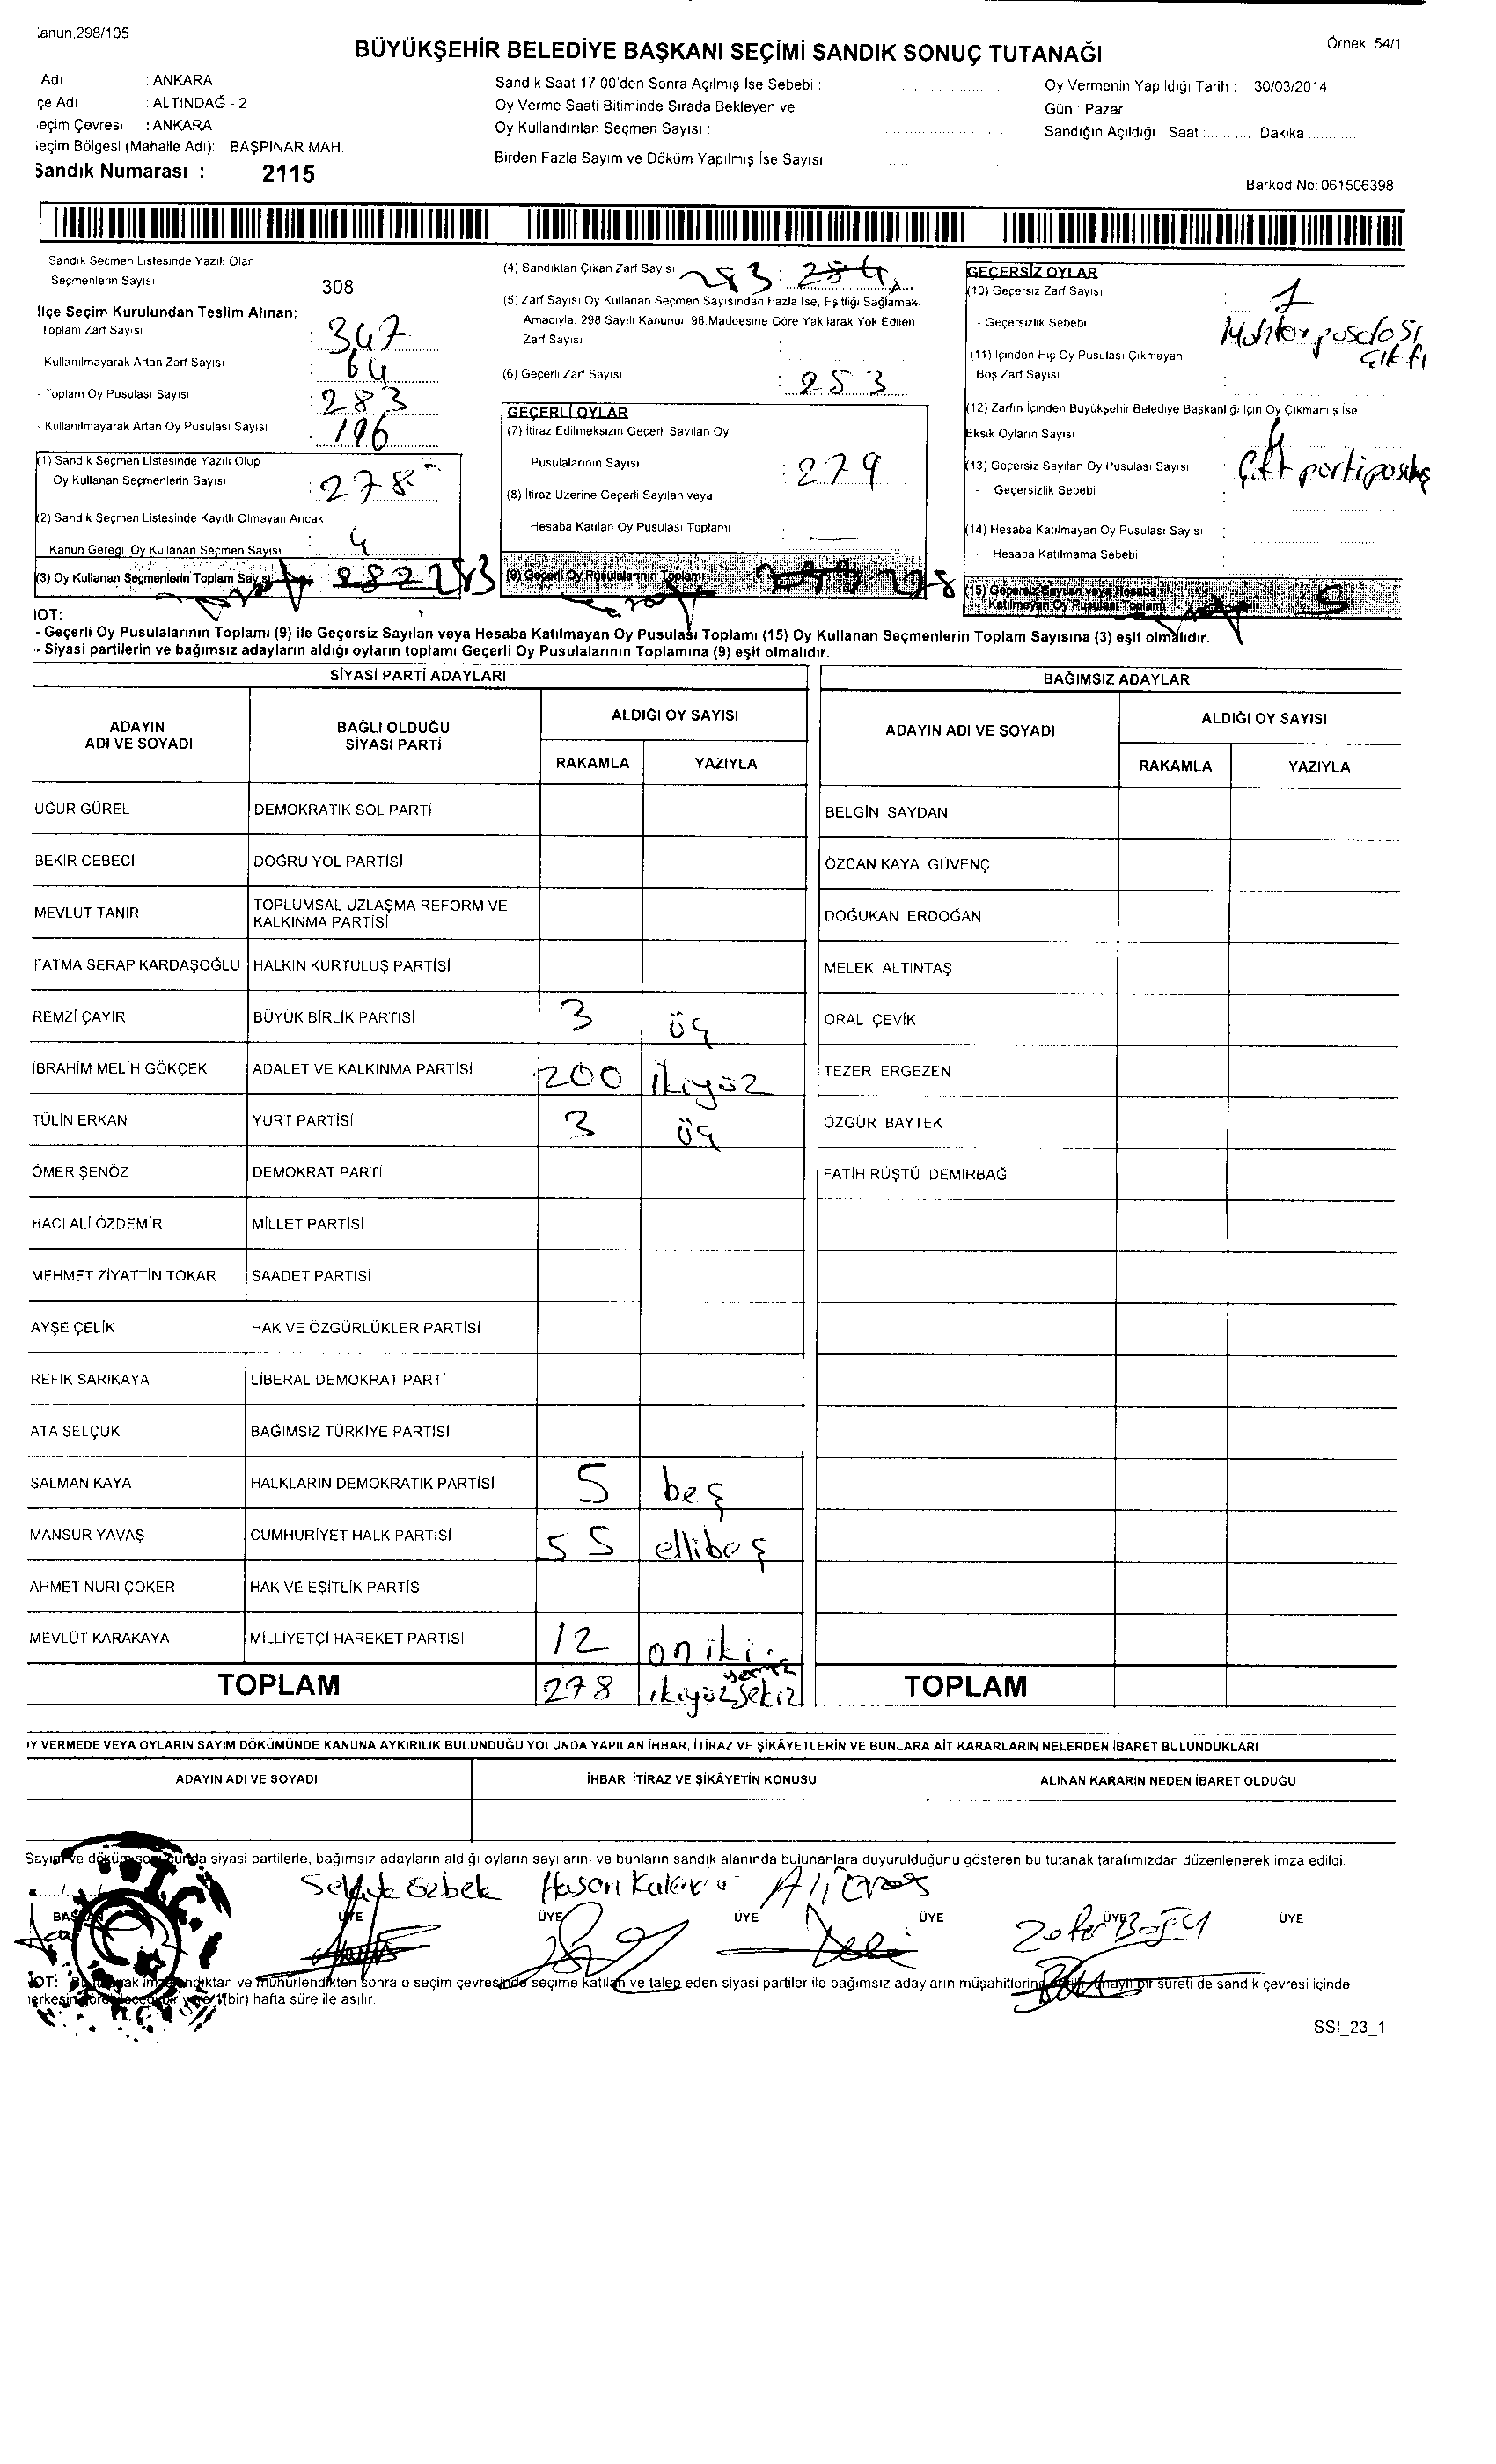 anun.298/105
Örnek: 54/1
BÜYÜKŞEHİR BELEDİYE BAŞKANI SEÇİMİ SANDIK SONUÇ TUTANAĞI
Adı : ANKARA
çe Adı : ALTINDAĞ - 2
eçim Çevresi : ANKARA
eçim Bölgesi (Mahalle Adı): BAŞPINAR MAH.
Sandık Numarası : 2115
Sandık Saat 17.00'den Sonra Açılmış İse Sebebi :
Oy Verme Saati Bitiminde Sırada Bekleyen ve
Oy Kullandırılan Seçmen Sayısı :
Birden Fazla Sayım ve Döküm Yapılmış İse Sayısı:
Oy Vermenin Yapıldığı Tarih : 30/03/2014
Gün : Pazar
Sandığın Açıldığı Saat :........... Dakika ............
Barkod No: 061506398
Sandık Seçmen Listesinde Yazılı Olan
Seçmenlerin Sayısı : 308
İlçe Seçim Kurulundan Teslim Alınan;
-Toplam Zarf Sayısı : 347
- Kullanılmayarak Artan Zarf Sayısı : 64
- Toplam Oy Pusulası Sayısı : 283
- Kullanılmayarak Artan Oy Pusulası Sayısı : 196
(1) Sandık Seçmen Listesinde Yazılı Olup
Oy Kullanan Seçmenlerin Sayısı : 278
(2) Sandık Seçmen Listesinde Kayıtlı Olmayan Ancak
Kanun Gereği Oy Kullanan Seçmen Sayısı : 4
(3) Oy Kullanan Seçmenlerin Toplam Sayısı 282 283
(4) Sandıktan Çıkan Zarf Sayısı 283 : 284
(5) Zarf Sayısı Oy Kullanan Seçmen Sayısından Fazla İse, Eşitliği Sağlamak
Amacıyla, 298 Sayılı Kanunun 98.Maddesine Göre Yakılarak Yok Edilen
Zarf Sayısı :
(6) Geçerli Zarf Sayısı : 253
GEÇERLİ OYLAR
(7) İtiraz Edilmeksizin Geçerli Sayılan Oy
Pusulalarının Sayısı : 279
(8) İtiraz Üzerine Geçerli Sayılan veya
Hesaba Katılan Oy Pusulası Toplamı : —
(9) Geçerli Oy Pusulalarının Toplamı 278
GEÇERSİZ OYLAR
(10) Geçersiz Zarf Sayısı : 1
- Geçersizlik Sebebi : Muhtar pusulası
çıktı
(11) İçinden Hiç Oy Pusulası Çıkmayan
Boş Zarf Sayısı :
(12) Zarfın İçinden Büyükşehir Belediye Başkanlığı İçin Oy Çıkmamış İse
Eksik Oyların Sayısı :
(13) Geçersiz Sayılan Oy Pusulası Sayısı : 4
- Geçersizlik Sebebi : Çift parti
(14) Hesaba Katılmayan Oy Pusulası Sayısı :
- Hesaba Katılmama Sebebi :
(15) Geçersiz Sayılan veya Hesaba
Katılmayan Oy Pusulası Toplamı 5
NOT:
- Geçerli Oy Pusulalarının Toplamı (9) ile Geçersiz Sayılan veya Hesaba Katılmayan Oy Pusulası Toplamı (15) Oy Kullanan Seçmenlerin Toplam Sayısına (3) eşit olmalıdır.
- Siyasi partilerin ve bağımsız adayların aldığı oyların toplamı Geçerli Oy Pusulalarının Toplamına (9) eşit olmalıdır.
SİYASİ PARTİ ADAYLARI
ADAYIN ADI VE SOYADI
BAĞLI OLDUĞU SİYASİ PARTİ
ALDIĞI OY SAYISI
RAKAMLA YAZIYLA
UĞUR GÜREL DEMOKRATİK SOL PARTİ
BEKİR CEBECİ DOĞRU YOL PARTİSİ
MEVLÜT TANIR TOPLUMSAL UZLAŞMA REFORM VE KALKINMA PARTİSİ
FATMA SERAP KARDAŞOĞLU HALKIN KURTULUŞ PARTİSİ
REMZİ ÇAYIR BÜYÜK BİRLİK PARTİSİ 3 üç
İBRAHİM MELİH GÖKÇEK ADALET VE KALKINMA PARTİSİ 200 ikiyüz
TÜLİN ERKAN YURT PARTİSİ 3 üç
ÖMER ŞENÖZ DEMOKRAT PARTİ
HACI ALİ ÖZDEMİR MİLLET PARTİSİ
MEHMET ZİYATTİN TOKAR SAADET PARTİSİ
AYŞE ÇELİK HAK VE ÖZGÜRLÜKLER PARTİSİ
REFİK SARIKAYA LİBERAL DEMOKRAT PARTİ
ATA SELÇUK BAĞIMSIZ TÜRKİYE PARTİSİ
SALMAN KAYA HALKLARIN DEMOKRATİK PARTİSİ 5 beş
MANSUR YAVAŞ CUMHURİYET HALK PARTİSİ 55 ellibeş
AHMET NURİ ÇOKER HAK VE EŞİTLİK PARTİSİ
MEVLÜT KARAKAYA MİLLİYETÇİ HAREKET PARTİSİ 12 oniki
TOPLAM 278 ikiyüz yetmiş sekiz
BAĞIMSIZ ADAYLAR
ADAYIN ADI VE SOYADI
ALDIĞI OY SAYISI
RAKAMLA YAZIYLA
BELGİN SAYDAN
ÖZCAN KAYA GÜVENÇ
DOĞUKAN ERDOĞAN
MELEK ALTINTAŞ
ORAL ÇEVİK
TEZER ERGEZEN
ÖZGÜR BAYTEK
FATİH RÜŞTÜ DEMİRBAĞ
TOPLAM
Y VERMEDE VEYA OYLARIN SAYIM DÖKÜMÜNDE KANUNA AYKIRILIK BULUNDUĞU YOLUNDA YAPILAN İHBAR, İTİRAZ VE ŞİKÂYETLERİN VE BUNLARA AİT KARARLARIN NELERDEN İBARET BULUNDUKLARI
ADAYIN ADI VE SOYADI İHBAR, İTİRAZ VE ŞİKÂYETİN KONUSU ALINAN KARARIN NEDEN İBARET OLDUĞU
Sayım ve döküm sonucunda siyasi partilerle, bağımsız adayların aldığı oyların sayılarını ve bunların sandık alanında bulunanlara duyurulduğunu gösteren bu tutanak tarafımızdan düzenlenerek imza edildi.
Selçuk Özbek Hasan Ali
BAŞKAN ÜYE ÜYE ÜYE ÜYE ÜYE ÜYE
Zafer
NOT: Bu tutanak imzalandıktan ve mühürlendikten sonra o seçim çevresinde seçime katılan ve talep eden siyasi partiler ile bağımsız adayların müşahitlerine onaylı bir sureti de sandık çevresi içinde
herkesin görebileceği bir yere 1(bir) hafta süre ile asılır.
SSI_23_1